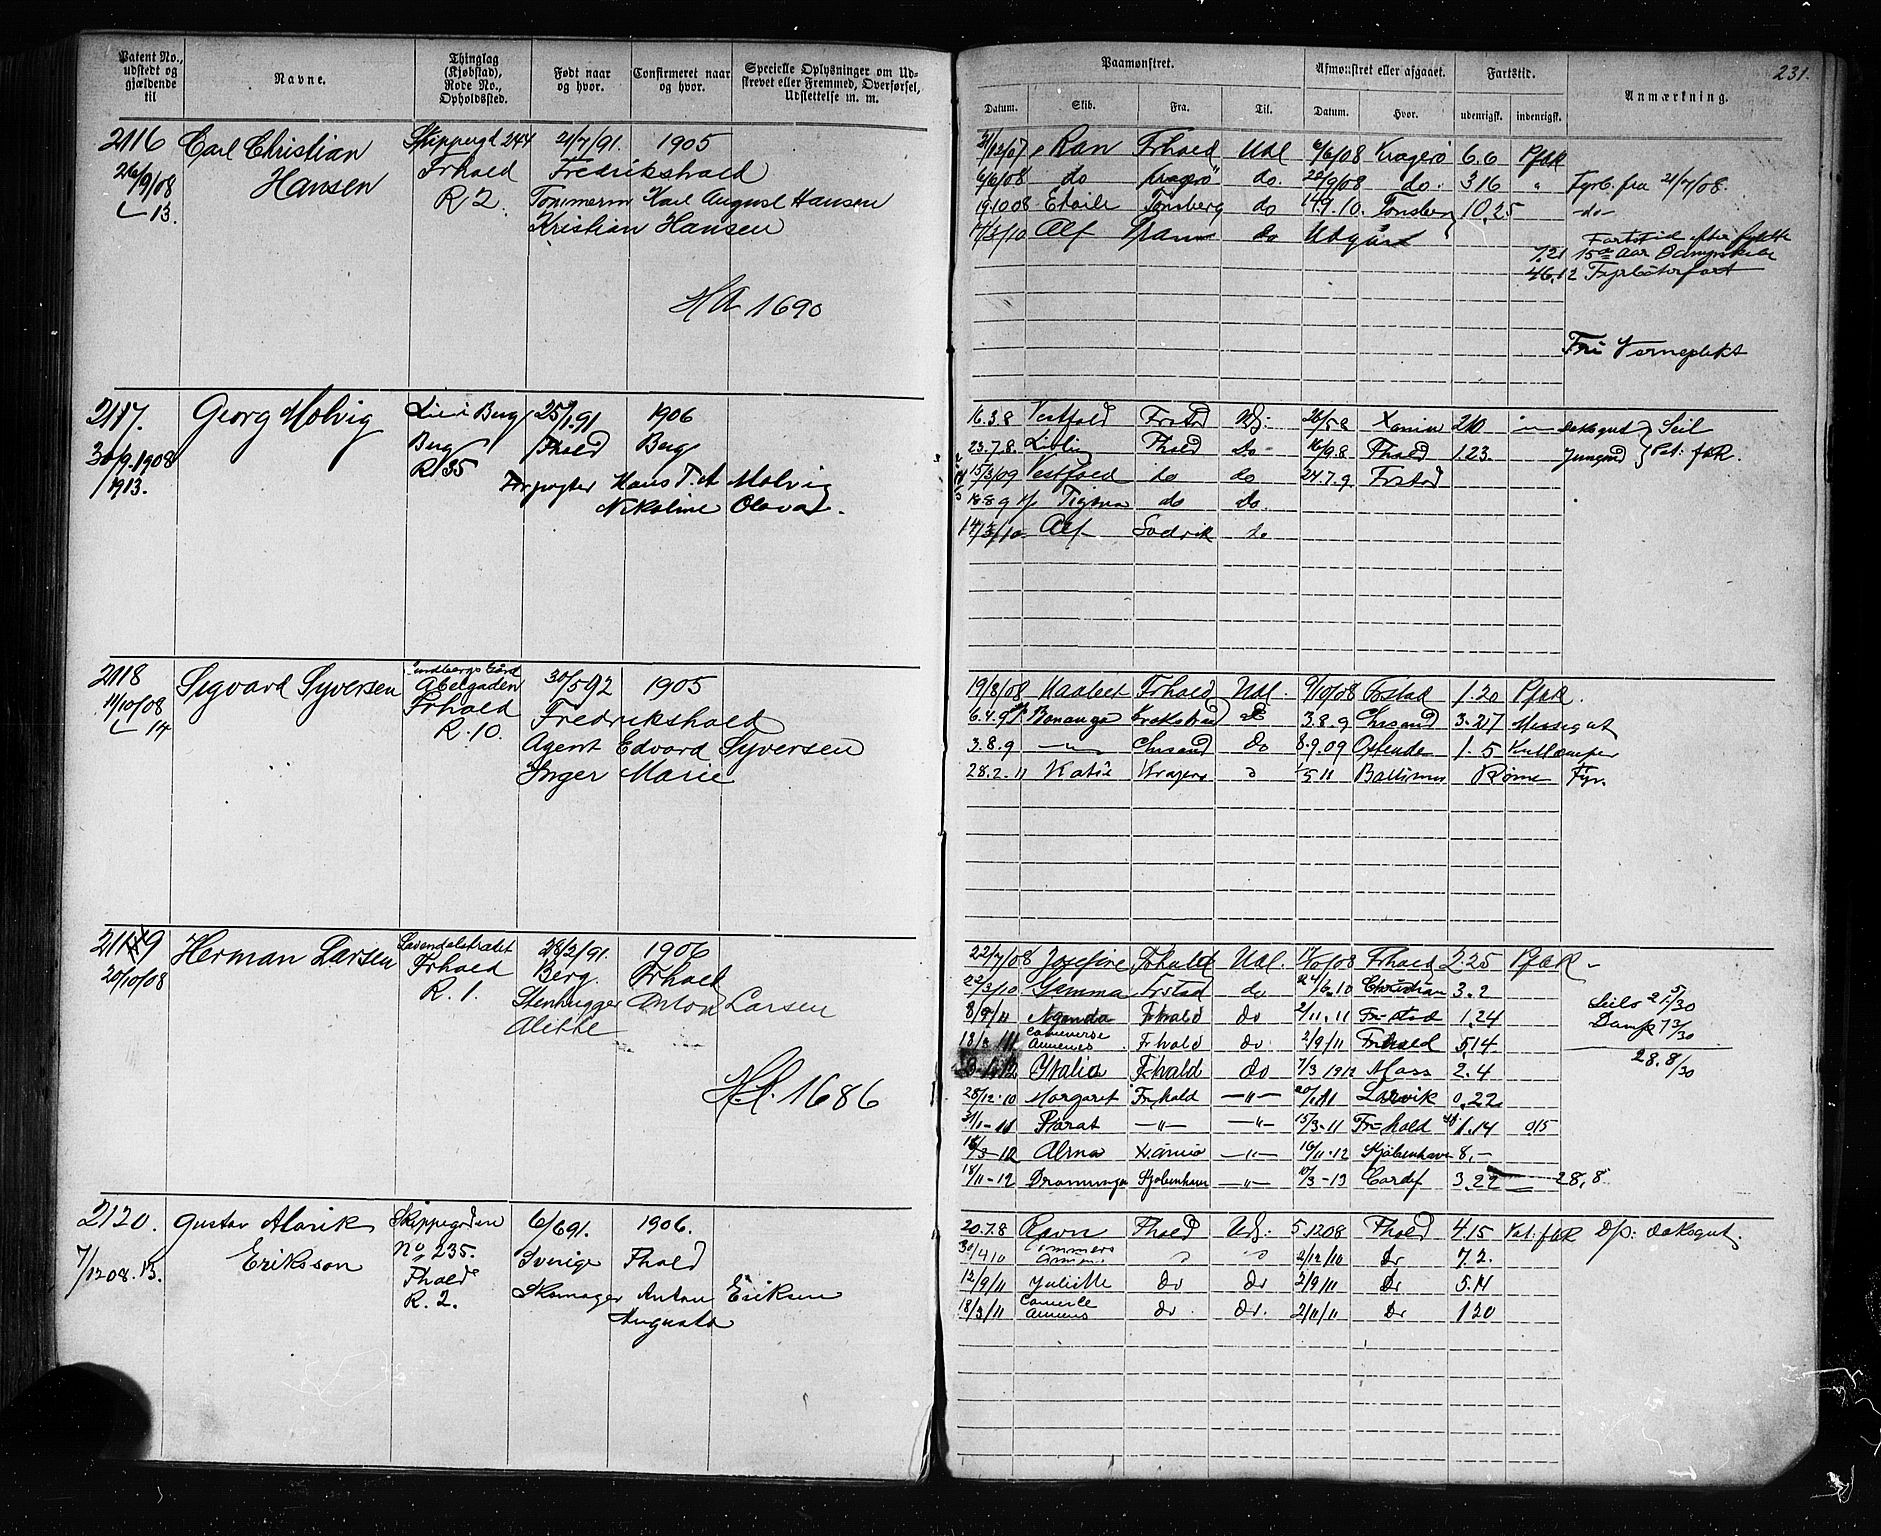 231.
Patent No., udstedt og gjældende til
Navne.
Thinglag (Kjøbstad), Rode No., Opholdssted.
Født naar og hvor.
Confirmeret naar og hvor.
Specielle Oplysninger om Udskrevet eller Fremmed, Overførsel, Udslettelse m. m.
Paamønstret.
Afmønstret eller afgaaet.
Fartstid.
Anmærkning.
Datum. Skib. Fra. Til. Datum. Hvor. udenrigsk. indenrigsk.
2116 Carl Christian Skippergt 244 21/7/91. 1905
26/9/08 Hansen Frhald Fredrikshald
13. R 2. Tømmerm Karl August Hansen
Kristian Hansen
HA 1690
31/12/07 Ran Frhald Udl 6/6/08 Kragerø 6.6 Pfak
6/6/08 do Kragerø do. 22/9/08 do. 316 " Fyrb. fra 21/7/08.
19.10.08 Etoile Tønsberg do 14.9.10. Tønsberg 10.25 -do-
Alf do Utgår
Fartstid efter fyldte
7.21 15de Aar Dampskibe
46.12 Fyrbøterfart
Fri Verneplikt
2117. Georg Molvig Berg 25/1.91 1906
30/9.1908 Berg Fhald Berg
1913. R 35 Forpagter Hans T. A Molvig
Nikoline Olava.
16.3.8 Vestfold Frstad Udl. 26/5 8 2.10 Dæksgut Seil
23.7.8. Fhald Do 16/9.8 Fhald 1.23. Jungmd Pat. fak.
15/3/09 Vestfold do do 24.7.9 Frstad
18.8.9 Tigma do Do.
14/3/10 Alf do
2118 Sigvard Syversen Sundbergs Gård 30/5 92 1905
11/10/08 Abelgaden Fredrikshald
14 Frhald Agent Edvard Syversen
R. 10. Inger Marie
19/8/08 Kaabet Frhald Udl. 9/10/08 Frstad 1.20 Pfak.
6.4.9 Bonanga do 3.8.9 Chrsand 3.27 Messegut
3.8.9 -"- Chrsand do 8.9.09 Ostende 1.5 Kullemper
28.2.11 Katie Kragerø 5 11 Rømt Fyr.
2119 Herman Larsen 28/2/91. 1906
20/10/08 Frhald Berg. Frhald
R. 1. Stenhugger Anton Larsen
Alitte
HA. 1686
22/7/08 Josefine Frhald Udl. 08 Frhald 2.25 Pfak
22/3/10 Gemma Frstad do 24/6.10 Christian 3.2
11 Agenda Frhald do 2/11.11 Fr-stad 1.24
Frhald do 2/9/11 Frhald 5.14
12 Italia Frhald do 7/3 1912 Moss 2.4
28/12.10 Margaret Fr.hald -"- 11 Larvik 0.22
31/1-11 -"- -"- 15/3-11 Fr=hald 1.14 0.15
12 Alma -"- 16/11.12 Kjøbenhavn 8.-
18/11-12 Dronningen Kjøbenhavn -"- 10/3-13 Cardif 3.22 28,8
Seils 21.5/30
Damp 7 3/30
28.8/30
2120. Gustav Alarik Skippegaden 6/6 91. 1906.
7/12 08. 13. Eriksson No 235. Sverige Fhald
Fhald Skomager Anton Eriksen
R. 2. Augusta
20.7.8 Ravn Fhald Udl: 5.12 08 Fhald 4.15 Pat: fak D/p: Daksgut.
30/4 10 2/12/10 Do 7.2.
12/9/11 Juliette do do 2/9/11 Do 5.11
18/3/11 do do. 2/11/11 Do 1 20